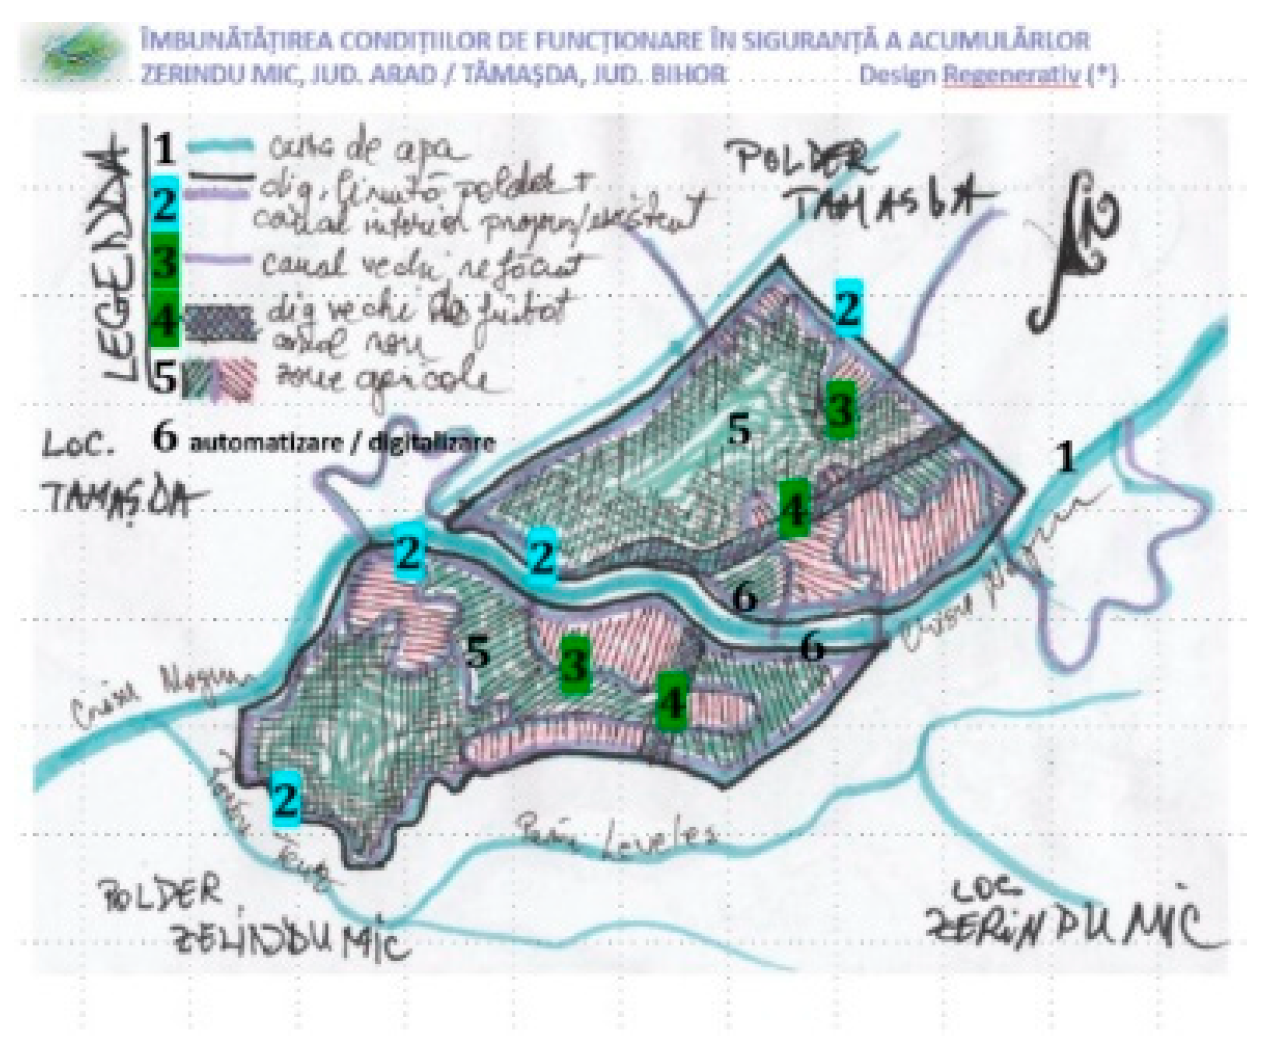 ÎMBUNĂTĂŢIREA CONDIŢIILOR DE FUNCŢIONARE ÎN SIGURANŢĂ A ACUMULĂRLOR
ZERINDU MIC, JUD. ARAD / TĂMAŞDA, JUD. BIHOR Design Regenerativ (*)
LEGENDA
1 curs de apa
2 dig, limită polder +
canal interior propus/existent
3 canal vechi refăcut
4 dig vechi
canal nou
5 zone agricole
6 automatizare / digitalizare
POLDER
TAMASDA
N
LOC.
TAMAȘDA
2
3
5
4
1
2
2
6
6
Crisul Negru
5
3
4
Crisul Negru
2
Paraul Leveles
POLDER
ZERINDU MIC
LOC
ZERINDU MIC